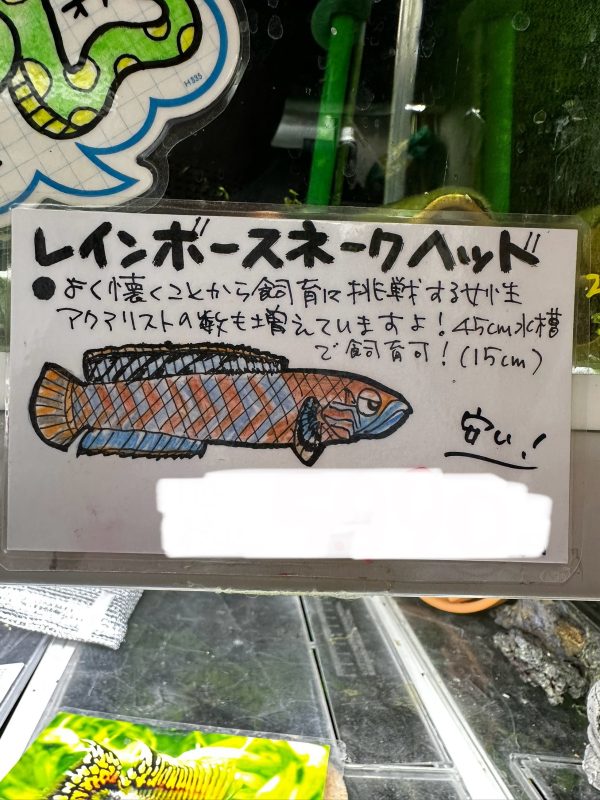 H835
レインボースネークヘッド
●よく懐くことから飼育に挑戦する女性
アクアリストの数も増えていますよ！45cm水槽
で飼育可！(15cm)
安い！